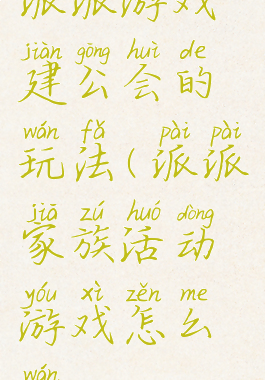 派派游戏
jiàn gōng huì de
建公会的
wán fǎ pài pài
玩法(派派
jiā zú huó dòng
家族活动
yóu xì zěn me
游戏怎么
wán